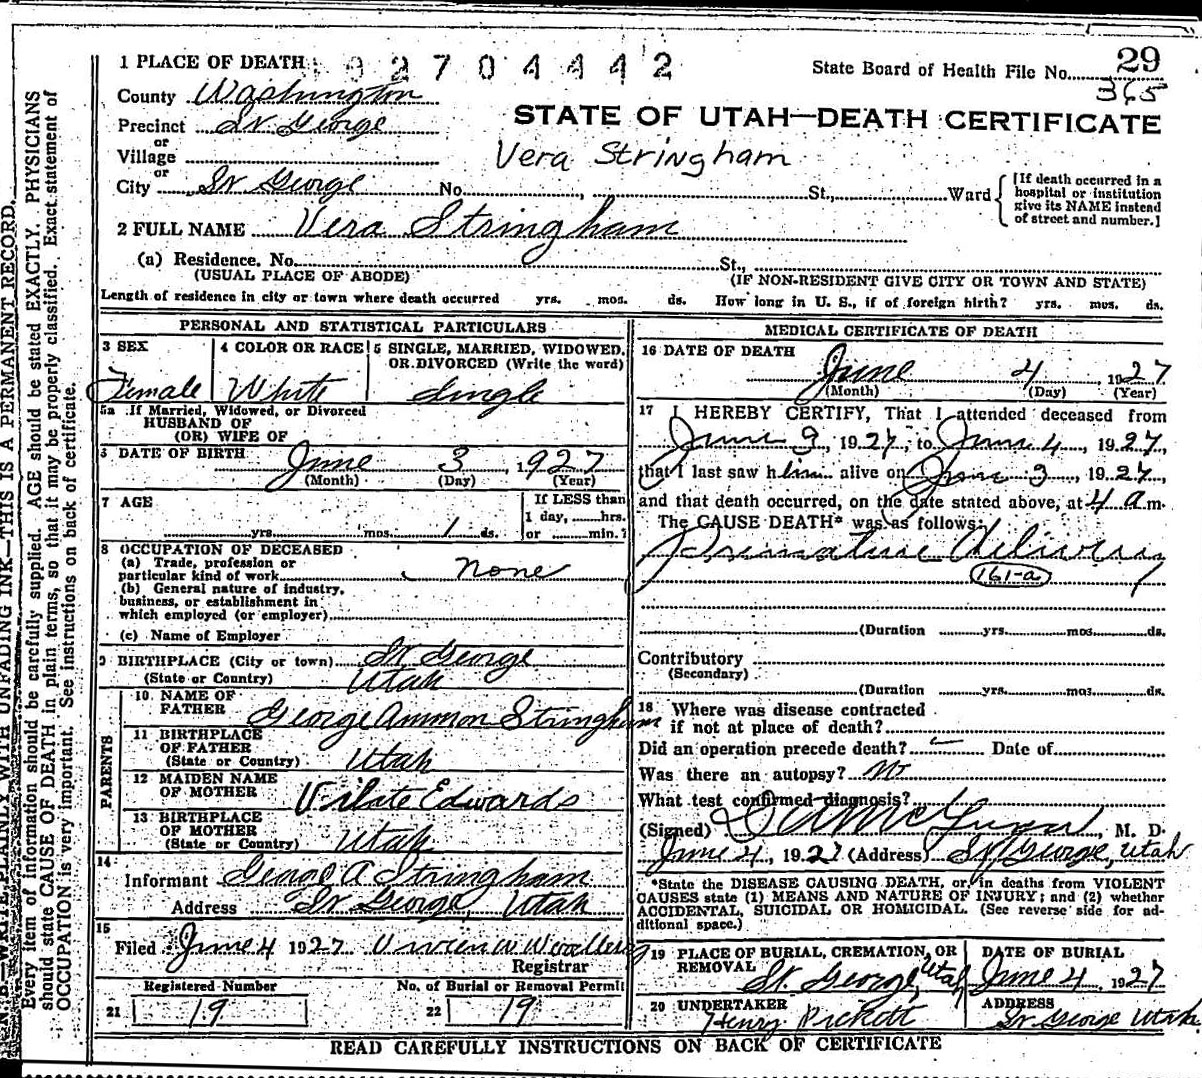 1 PLACE OF DEATH 02704442
State Board of Health File No. 29
365
County Washington
STATE OF UTAH—DEATH CERTIFICATE
Precinct St George
or
Village
Vera Stringham
or
City St George No. , St., Ward
[If death occurred in a
hospital or institution
give its NAME instead
of street and number.]
2 FULL NAME Vera Stringham
(a) Residence. No. St.,
(USUAL PLACE OF ABODE) (IF NON-RESIDENT GIVE CITY OR TOWN AND STATE)
Length of residence in city or town where death occurred yrs. mos. ds. How long in U. S., if of foreign birth? yrs. mos. ds.
PERSONAL AND STATISTICAL PARTICULARS
3 SEX
Female
4 COLOR OR RACE
White
5 SINGLE, MARRIED, WIDOWED,
OR DIVORCED (Write the word)
Single
5a If Married, Widowed, or Divorced
HUSBAND OF
(OR) WIFE OF
6 DATE OF BIRTH June 3, 1927
(Month) (Day) (Year)
7 AGE
yrs. mos. 1 ds.
If LESS than
1 day, hrs.
or min.?
8 OCCUPATION OF DECEASED
(a) Trade, profession or
particular kind of work none
(b) General nature of industry,
business, or establishment in
which employed (or employer)
(c) Name of Employer
9 BIRTHPLACE (City or town) St George
(State or Country) Utah
PARENTS
10 NAME OF
FATHER George Ammon Stringham
11 BIRTHPLACE
OF FATHER
(State or Country) Utah
12 MAIDEN NAME
OF MOTHER Vilate Edwards
13 BIRTHPLACE
OF MOTHER
(State or Country) Utah
14
Informant George A Stringham
Address St George, Utah
15
Filed June 4 1927
Registrar
Registered Number No. of Burial or Removal Permit
21 19 22 19
MEDICAL CERTIFICATE OF DEATH
16 DATE OF DEATH
June 4 1927
(Month) (Day) (Year)
17 I HEREBY CERTIFY, That I attended deceased from
June 3, 1927, to June 4, 1927,
that I last saw him alive on June 3, 1927,
and that death occurred, on the date stated above, at 4 a m.
The CAUSE DEATH* was as follows:
Premature delivery
161-a
(Duration yrs. mos. ds.
Contributory
(Secondary)
(Duration yrs. mos. ds.
18 Where was disease contracted
if not at place of death?
Did an operation precede death? Date of
Was there an autopsy? No
What test confirmed diagnosis?
(Signed) , M. D.
June 4, 1927 (Address) St George, Utah
*State the DISEASE CAUSING DEATH, or, in deaths from VIOLENT
CAUSES state (1) MEANS AND NATURE OF INJURY; and (2) whether
ACCIDENTAL, SUICIDAL OR HOMICIDAL. (See reverse side for ad-
ditional space.)
19 PLACE OF BURIAL, CREMATION, OR
REMOVAL St. George, Utah
DATE OF BURIAL
June 4 1927
20 UNDERTAKER
Henry Pickett
ADDRESS
St George Utah
READ CAREFULLY INSTRUCTIONS ON BACK OF CERTIFICATE
N. B.—WRITE PLAINLY WITH UNFADING INK—THIS IS A PERMANENT RECORD.
Every item of information should be carefully supplied. AGE should be stated EXACTLY. PHYSICIANS
should state CAUSE OF DEATH in plain terms, so that it may be properly classified. Exact statement of
OCCUPATION is very important. See instructions on back of certificate.